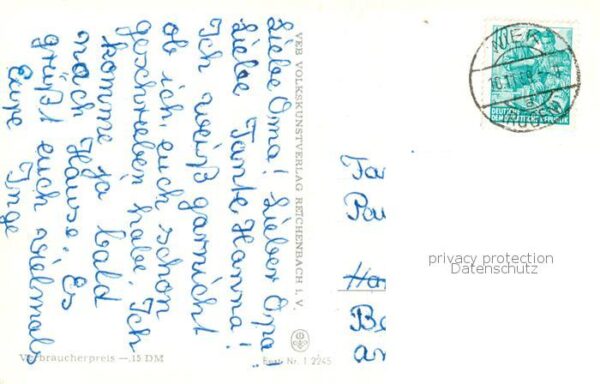 Liebe Oma! Lieber Opa!
Liebe Tante Hanna!
Ich weiß garnicht
ob ich euch schon
geschrieben habe. Ich
komme ja bald
nach Hause. Es
grüßt euch vielmals
Eure Inge
VEB VOLKSKUNSTVERLAG REICHENBACH i. V.
Verbraucherpreis —.15 DM
Best.-Nr. I 2245
DEUTSCHE
DEMOKRATISCHE
privacy protection
Datenschutz
Be
an